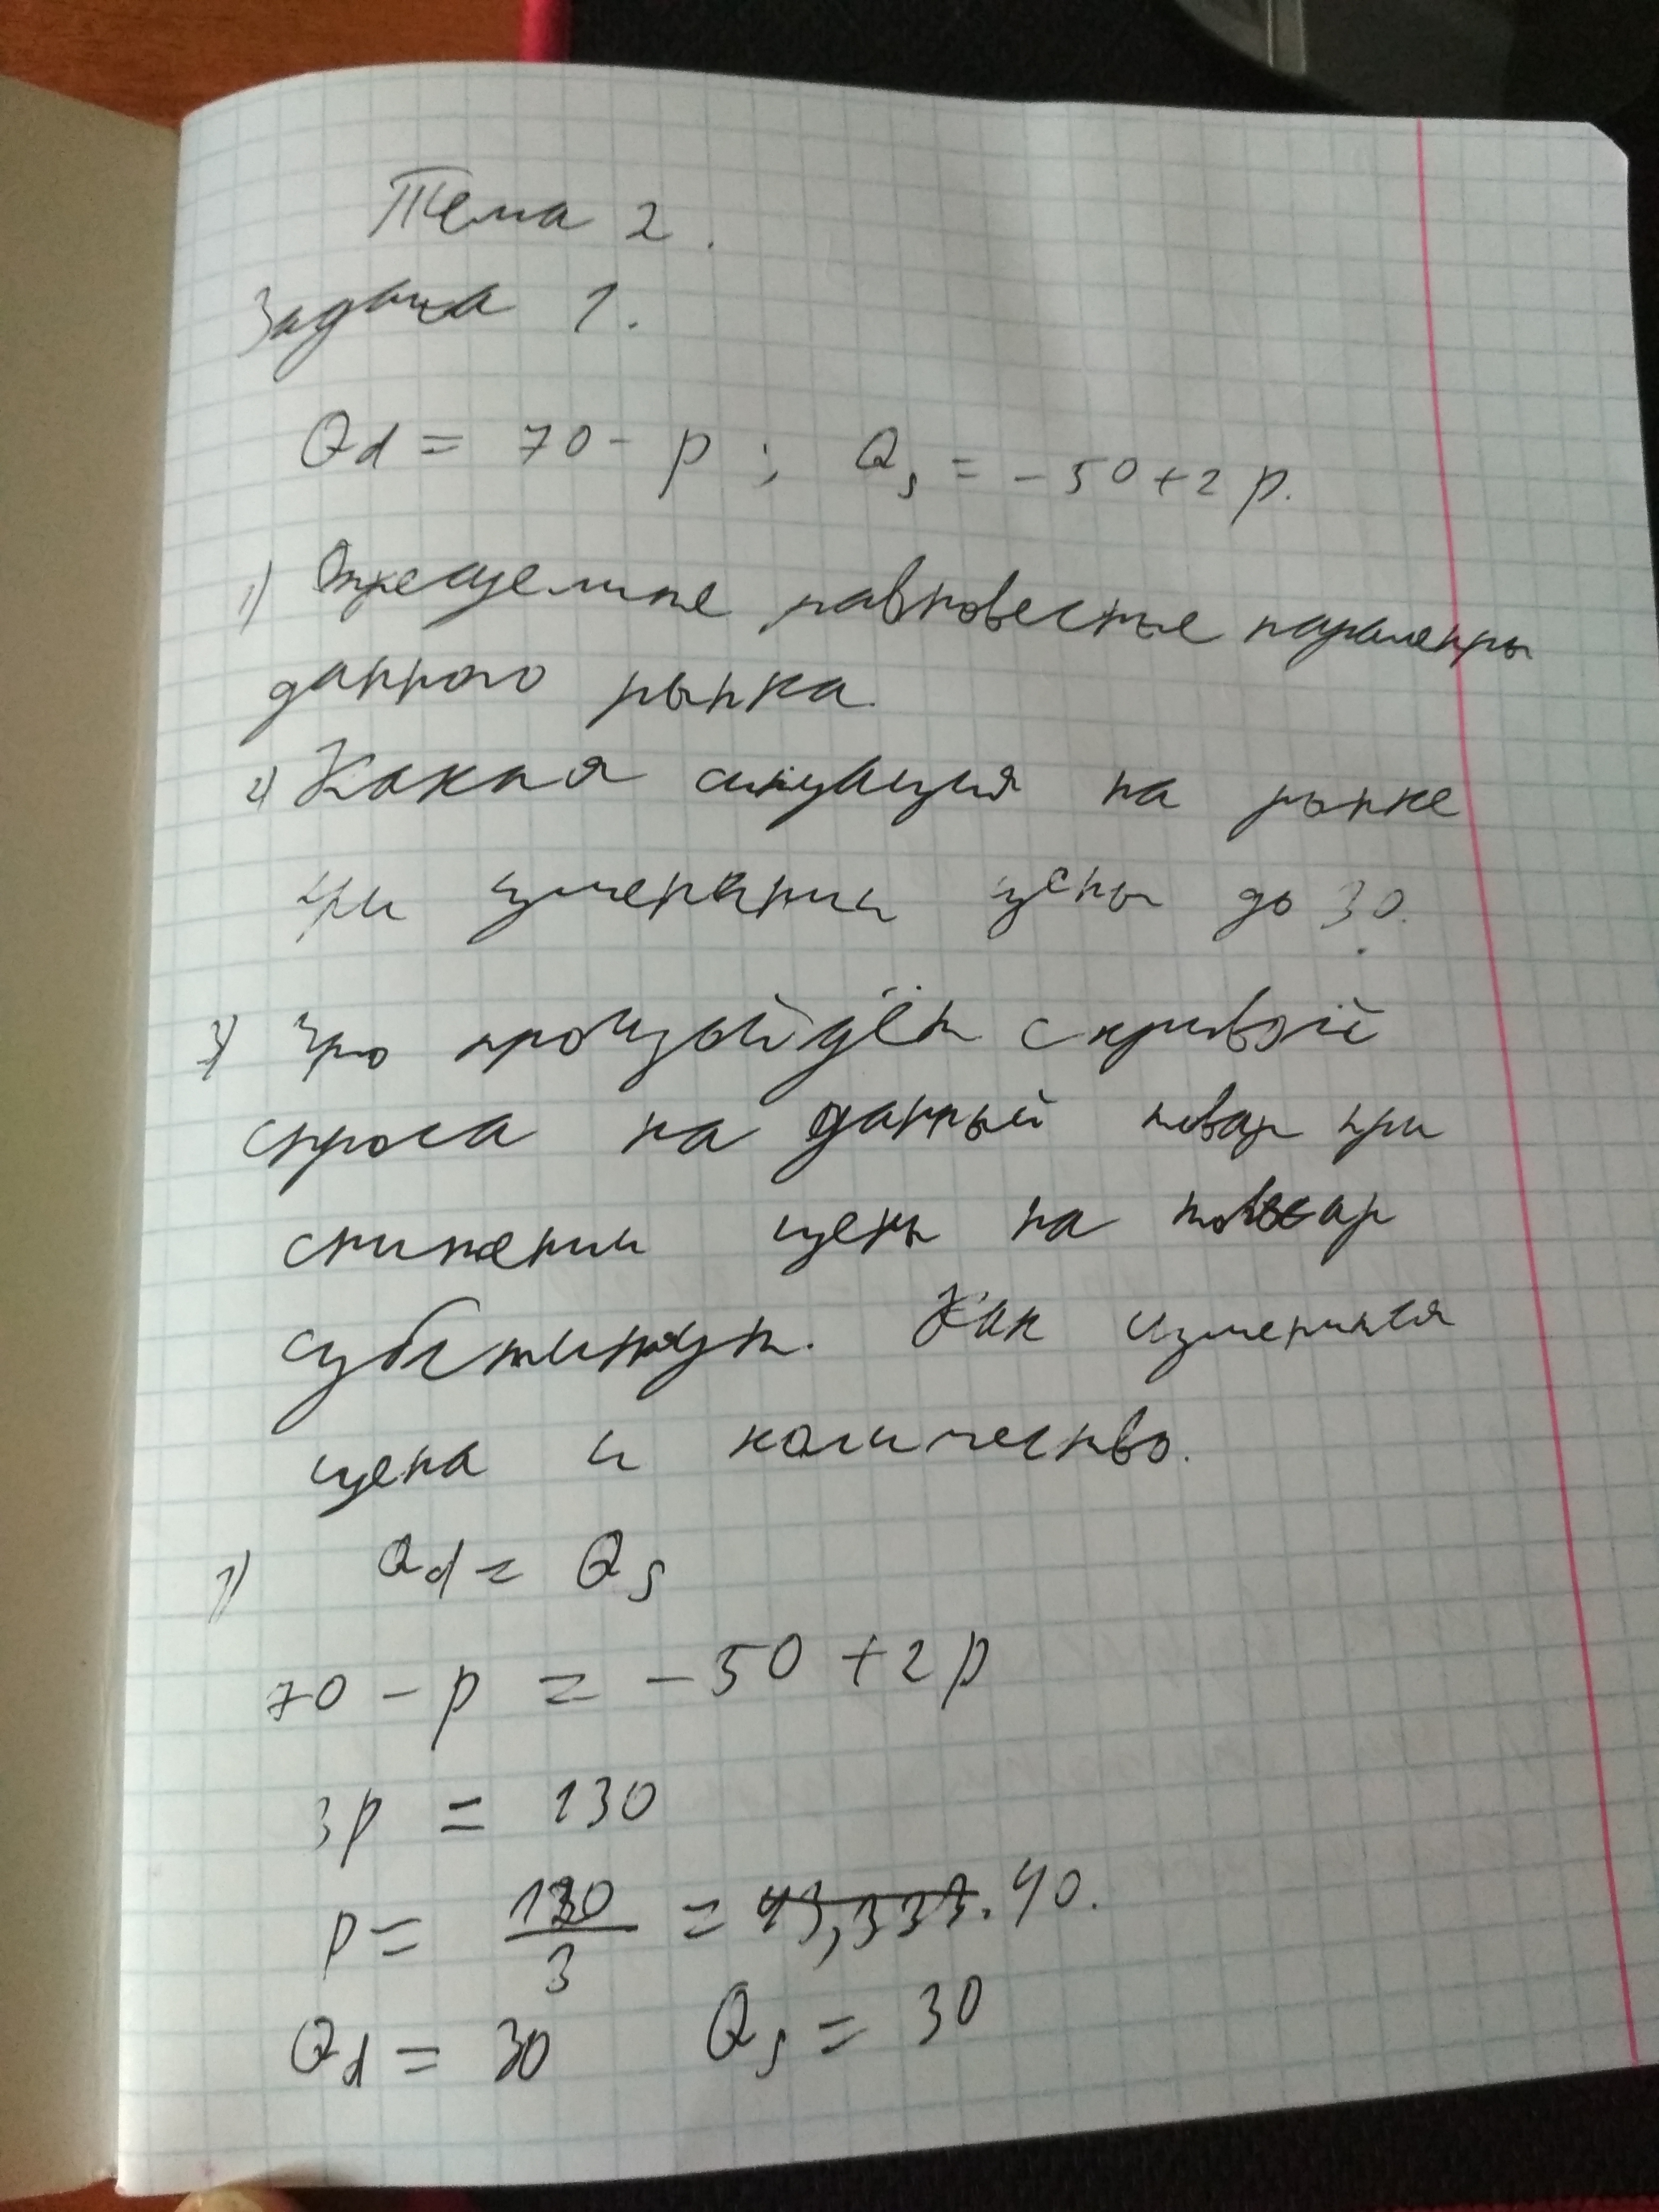 Тема 2.
Задача 1.
Qd = 70 - p ; Qs = -50+2p.
1) Определите равновесные параметры
данного рынка.
2) Какая ситуация на рынке
при изменении цены до 30.
3) Что произойдёт с кривой
спроса на данный товар при
снижении цены на товар
субститут. Как изменится
цена и количество.
1) Qd = Qs
70 - p = -50 + 2p
3p = 130
p = 120/3 = 43,333. 40.
Qd = 30 Qs = 30